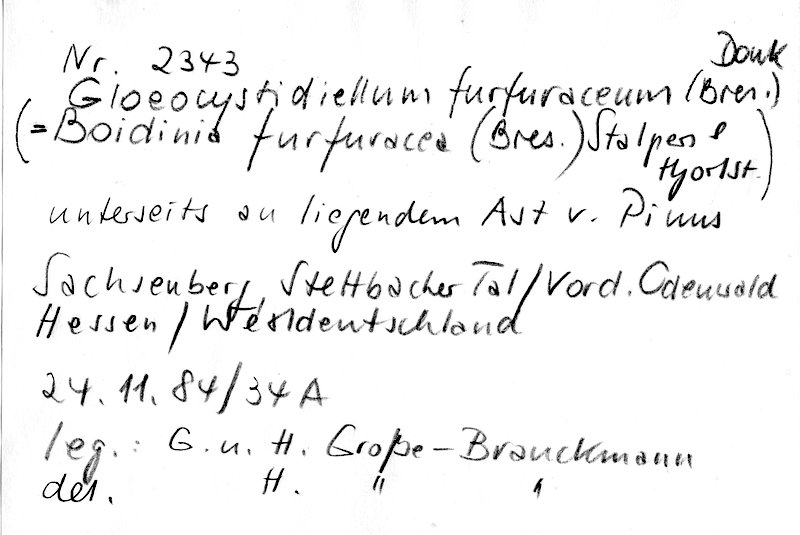 Nr. 2343
Gloeocystidiellum furfuraceum (Bres.) Donk
(= Boidinia furfuracea (Bres.) Stalpers & Hjortst.)
unterseits an liegendem Ast v. Pinus
Sachsenberg, Stettbacher Tal / Vord. Odenwald
Hessen / Westdeutschland
24. 11. 84 / 34 A
leg.: G. u. H. Große-Brauckmann
det. H. " "